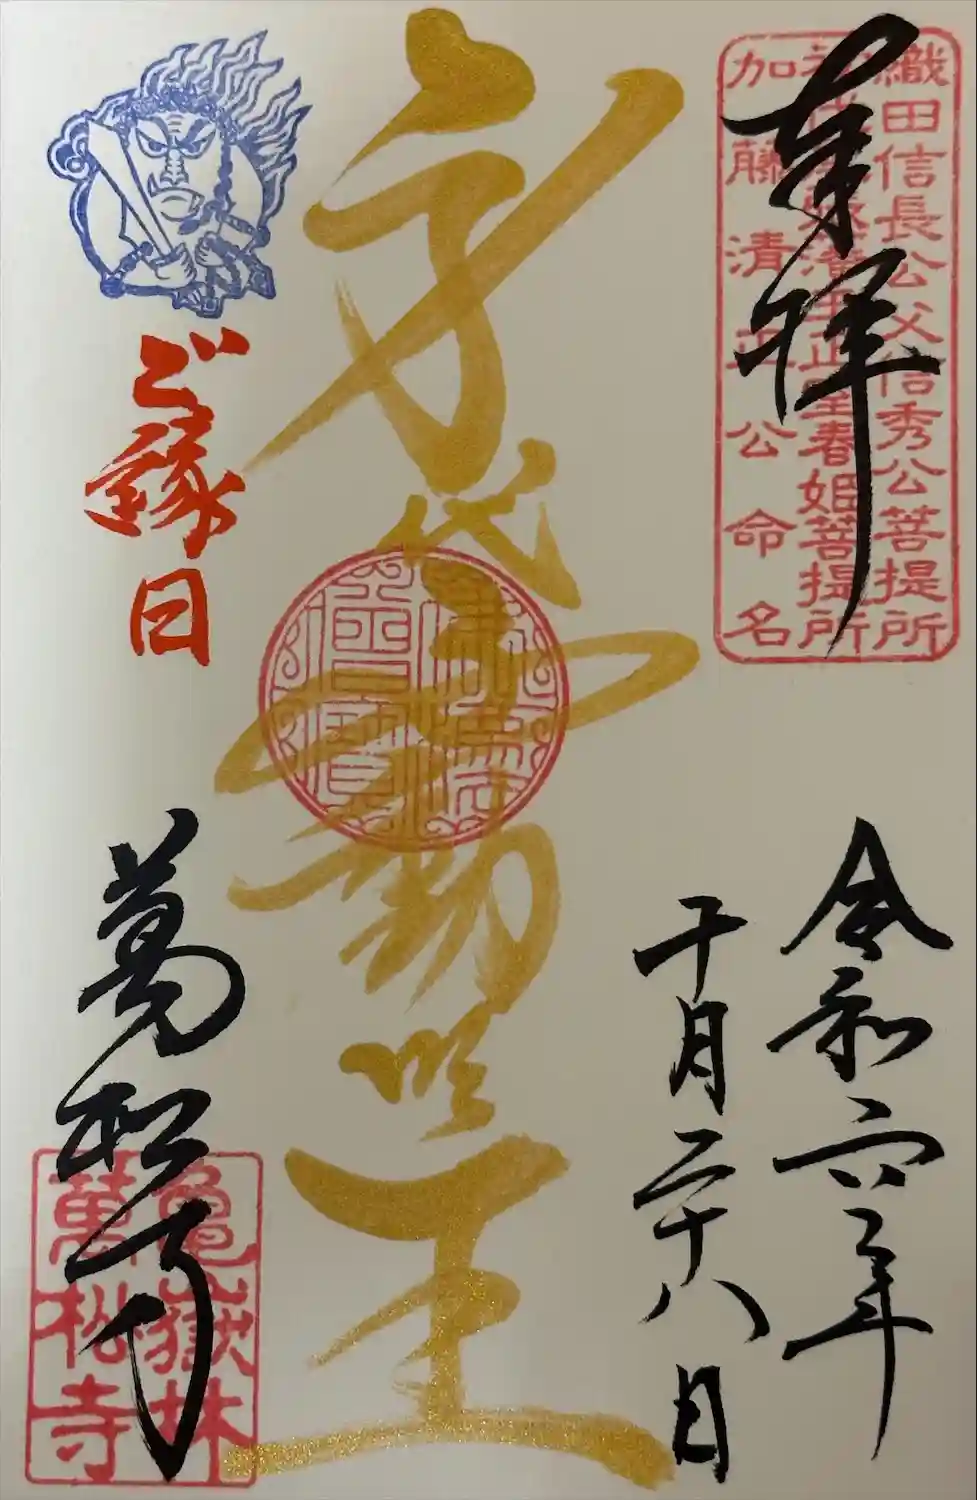 奉拝
織田信長公父信秀公菩提所
初代尾張藩主正室春姫菩提所
加藤清正公命名
令和六年
十月二十八日
身代不動明王
ご縁日
萬松寺
亀嶽林
萬松寺